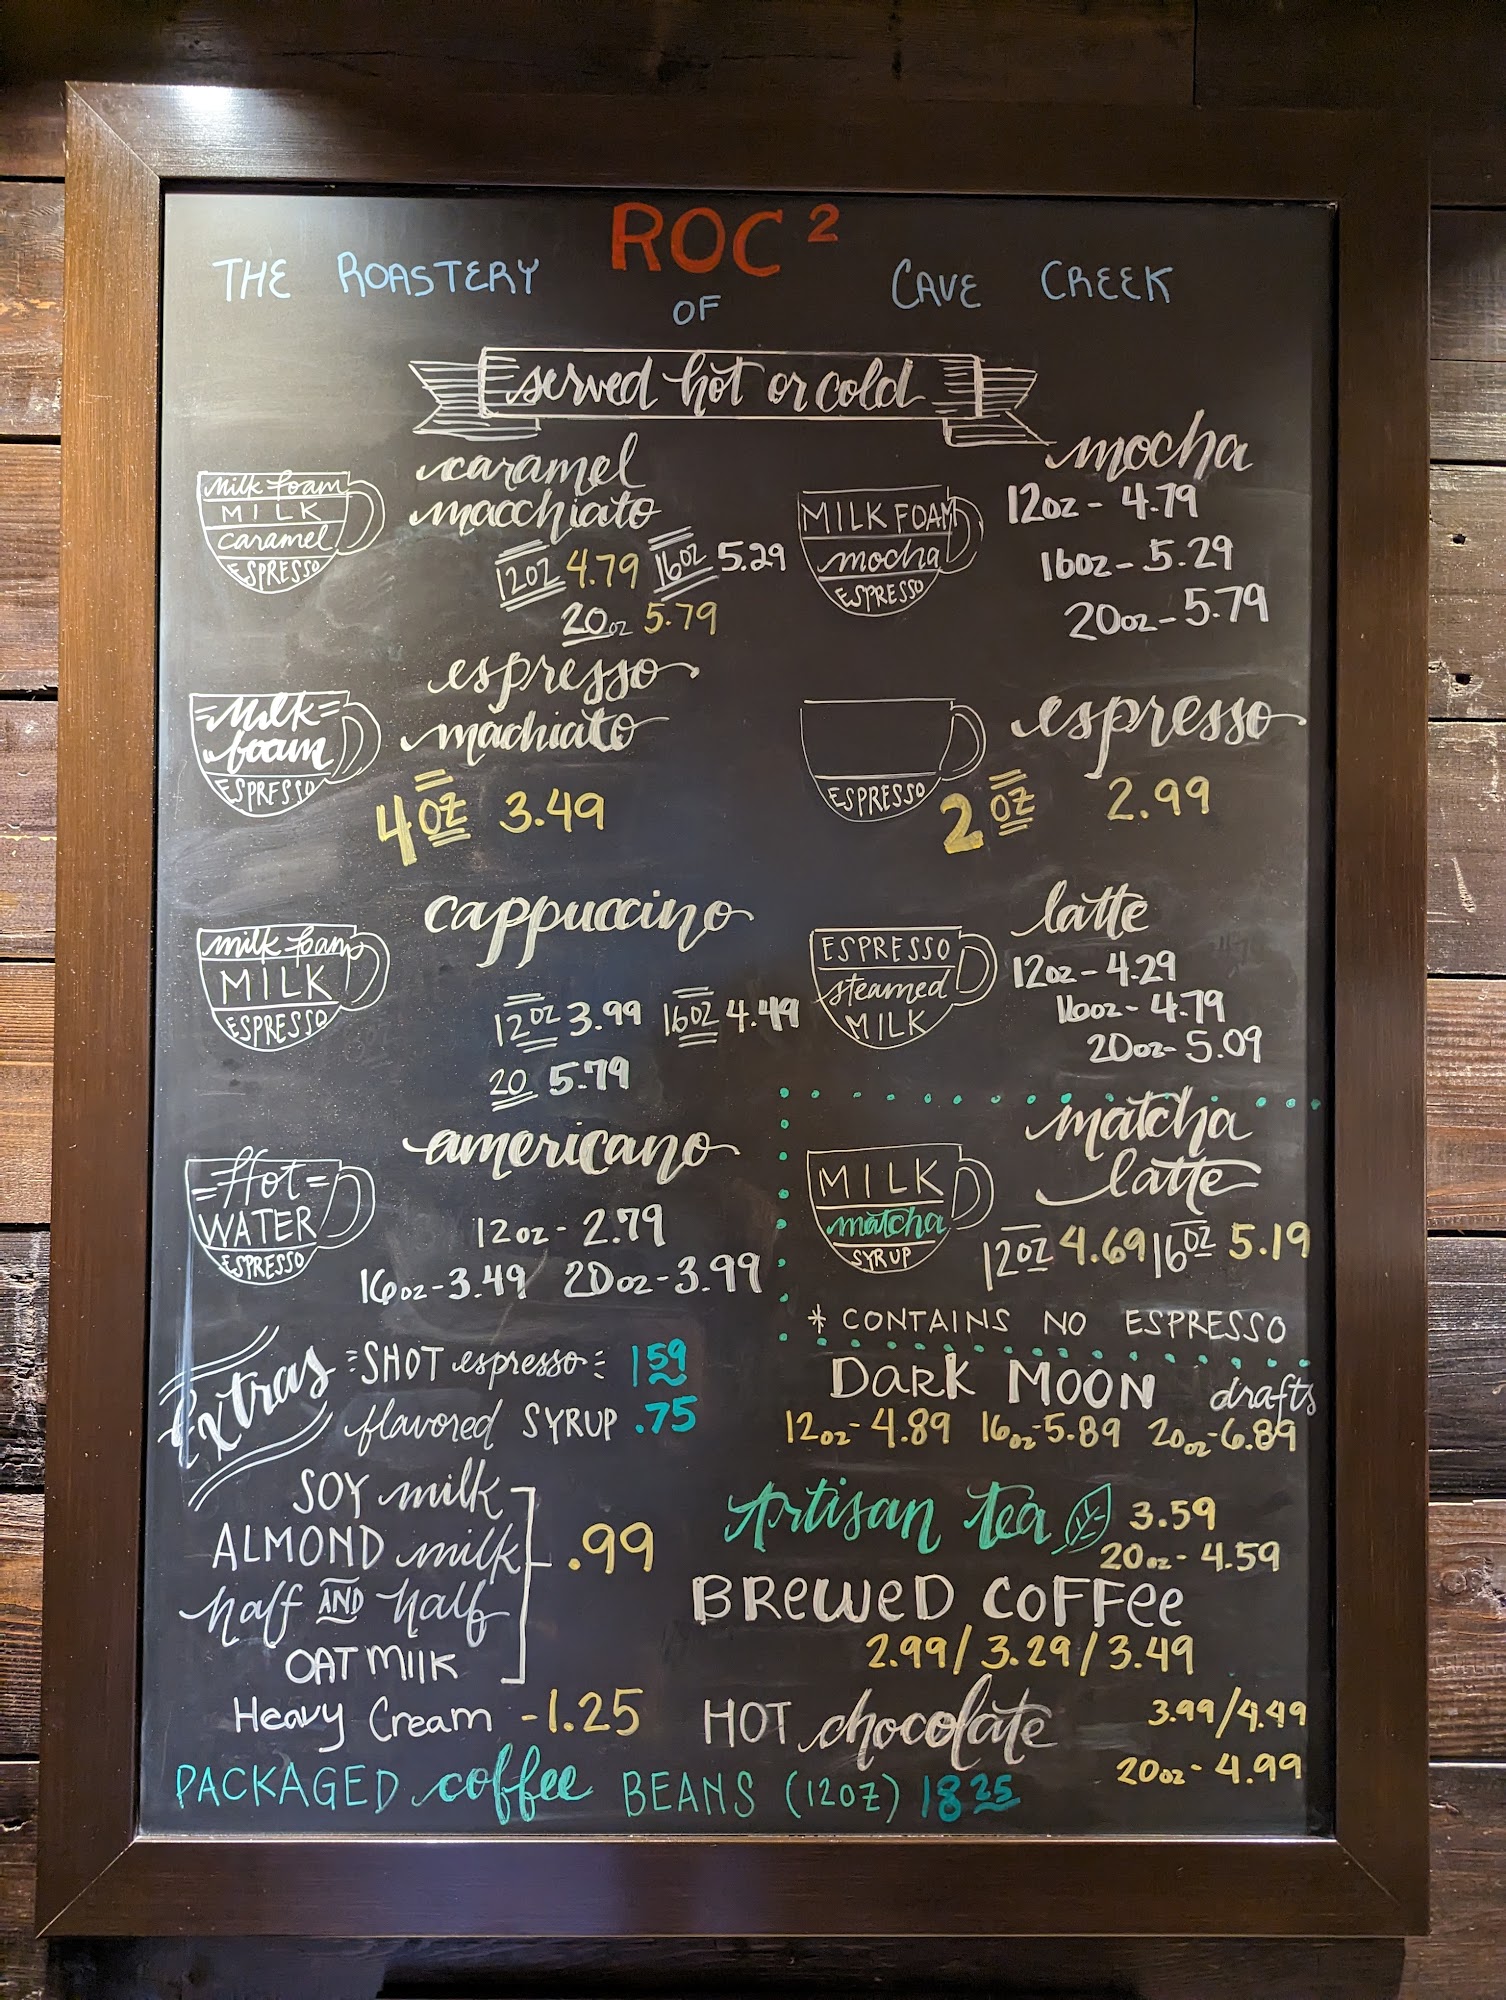 ROC²
THE ROASTERY OF CAVE CREEK
served hot or cold
milk foam
MILK
caramel
ESPRESSO
caramel
macchiato
12oz 4.79 16oz 5.29
20oz 5.79
MILK FOAM
mocha
ESPRESSO
mocha
12oz - 4.79
16oz - 5.29
20oz - 5.79
milk
foam
ESPRESSO
espresso
machiato
4oz 3.49
ESPRESSO
espresso
2oz 2.99
milk foam
MILK
ESPRESSO
cappuccino
12oz 3.99 16oz 4.49
20 5.79
ESPRESSO
steamed
MILK
latte
12oz - 4.29
16oz - 4.79
20oz - 5.09
Hot
WATER
ESPRESSO
americano
12oz - 2.79
16oz - 3.49 20oz - 3.99
MILK
matcha
SYRUP
matcha
latte
12oz 4.69 16oz 5.19
* CONTAINS NO ESPRESSO
Extras
SHOT espresso 1 59
flavored SYRUP .75
SOY milk
ALMOND milk
half AND half
OAT MILK
.99
Heavy Cream - 1.25
DARK MOON drafts
12oz - 4.89 16oz - 5.89 20oz - 6.89
Artisan tea 3.59
20oz - 4.59
BREWED COFFEE
2.99 / 3.29 / 3.49
HOT chocolate 3.99/4.49
20oz - 4.99
PACKAGED coffee BEANS (12OZ) 18 25